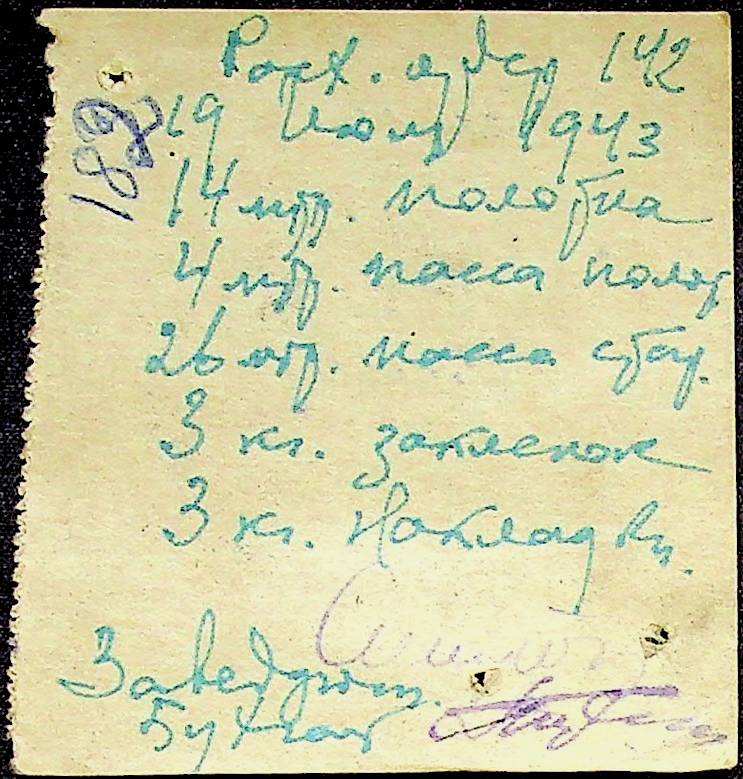 Расх. ордер 142
182
19 июля 1943
14 мтр. полотна
4 мтр. пасса полот
26 мтр. пасса стар.
3 кг. заклепок
3 кг. Накладки.
Заведующ.